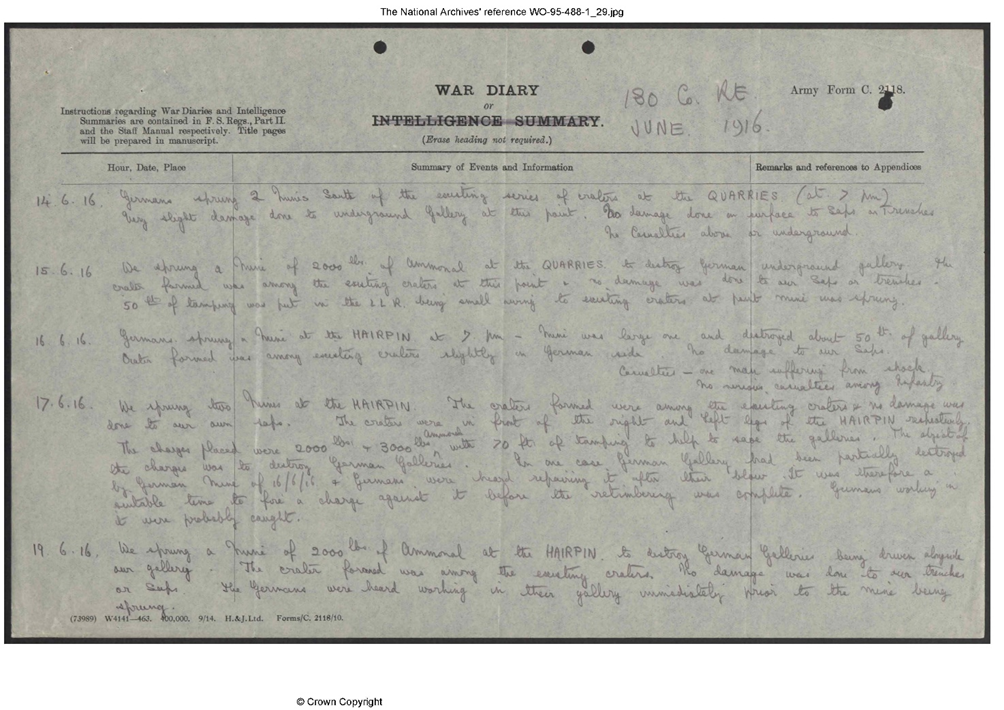 The National Archives' reference WO-95-488-1_29.jpg
WAR DIARY
or
INTELLIGENCE SUMMARY.
(Erase heading not required.)
Instructions regarding War Diaries and Intelligence
Summaries are contained in F. S. Regs., Part II.
and the Staff Manual respectively. Title pages
will be prepared in manuscript.
180 Co. RE
JUNE. 1916.
Army Form C. 2118.
Hour, Date, Place
Summary of Events and Information
Remarks and references to Appendices
14.6.16. Germans sprung 2 mines South of the existing series of craters at the QUARRIES (at 7 pm)
Very slight damage done to underground Gallery at this point. No damage done on surface to Saps or Trenches
No Casualties above or underground.
15.6.16 We sprung a Mine of 2000 lbs. of Ammonal at the QUARRIES. to destroy German underground gallery. The
crater formed was among the existing craters at this point & no damage was done to our Saps or trenches.
50 ft of tamping was put in the L.L.R. being small to existing craters at point mine was sprung.
16 6.16. Germans sprung a Mine at the HAIRPIN at 7 pm - Mine was large one and destroyed about 50 ft. of gallery
Crater formed was among existing craters slightly in German side. No damage to our Saps.
Casualties - one man suffering from shock
No serious casualties among Infantry
17.6.16. We sprung two Mines at the HAIRPIN. The craters formed were among the existing craters & no damage was
done to our own saps. The craters were in front of the right and left legs of the HAIRPIN respectively.
The charges placed were 2000 lbs & 3000 lbs Ammonal with 70 ft. of tamping to help to save the galleries. The object of
the charges was to destroy German Galleries. In one case German Gallery had been partially destroyed
by German Mine of 16/6/16 & Germans were heard repairing it after their blow. It was therefore a
suitable time to fire a charge against it before the retimbering was complete. Germans working in
it were probably caught.
19.6.16. We sprung a Mine of 2000 lbs. of Ammonal at the HAIRPIN. to destroy German Galleries being driven alongside
our gallery. The crater formed was among the existing craters. No damage was done to our trenches
or Saps. The Germans were heard working in their gallery immediately prior to the mine being
sprung.
(73989) W4141—463. 400,000. 9/14. H.&J.Ltd. Forms/C. 2118/10.
© Crown Copyright